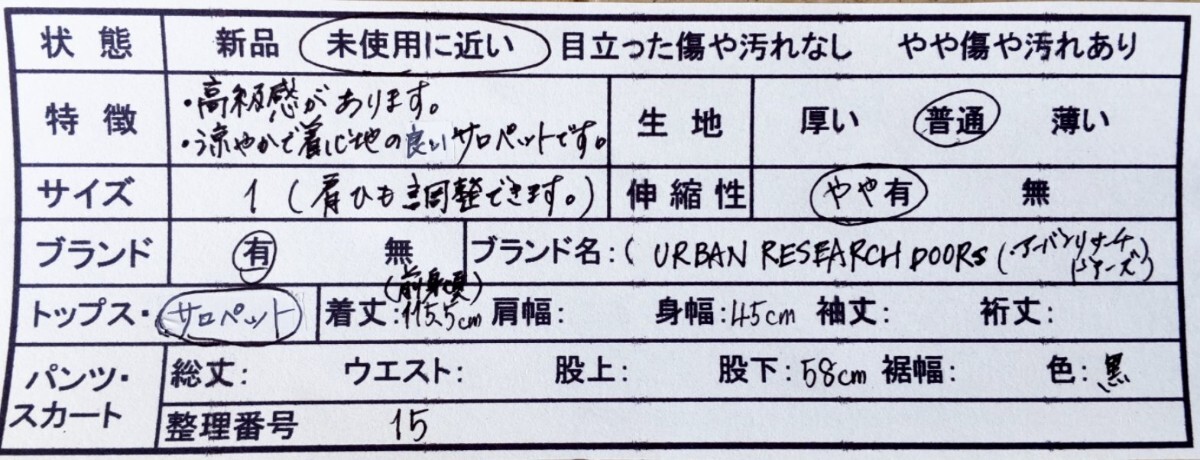 状態 新品 未使用に近い 目立った傷や汚れなし やや傷や汚れあり
特徴 ・高級感があります。
・涼やかで着心地の良いサロペットです。
生地 厚い 普通 薄い
サイズ 1 (肩ひも調整できます。) 伸縮性 やや有 無
ブランド 有 無 ブランド名:( URBAN RESEARCH DOORS (アーバンリサーチ
ドアーズ)
(前身頃)
トップス・サロペット 着丈:115.5cm 肩幅: 身幅:45cm 袖丈: 裄丈:
パンツ・
スカート
総丈: ウエスト: 股上: 股下:58cm 裾幅: 色:黒
整理番号 15